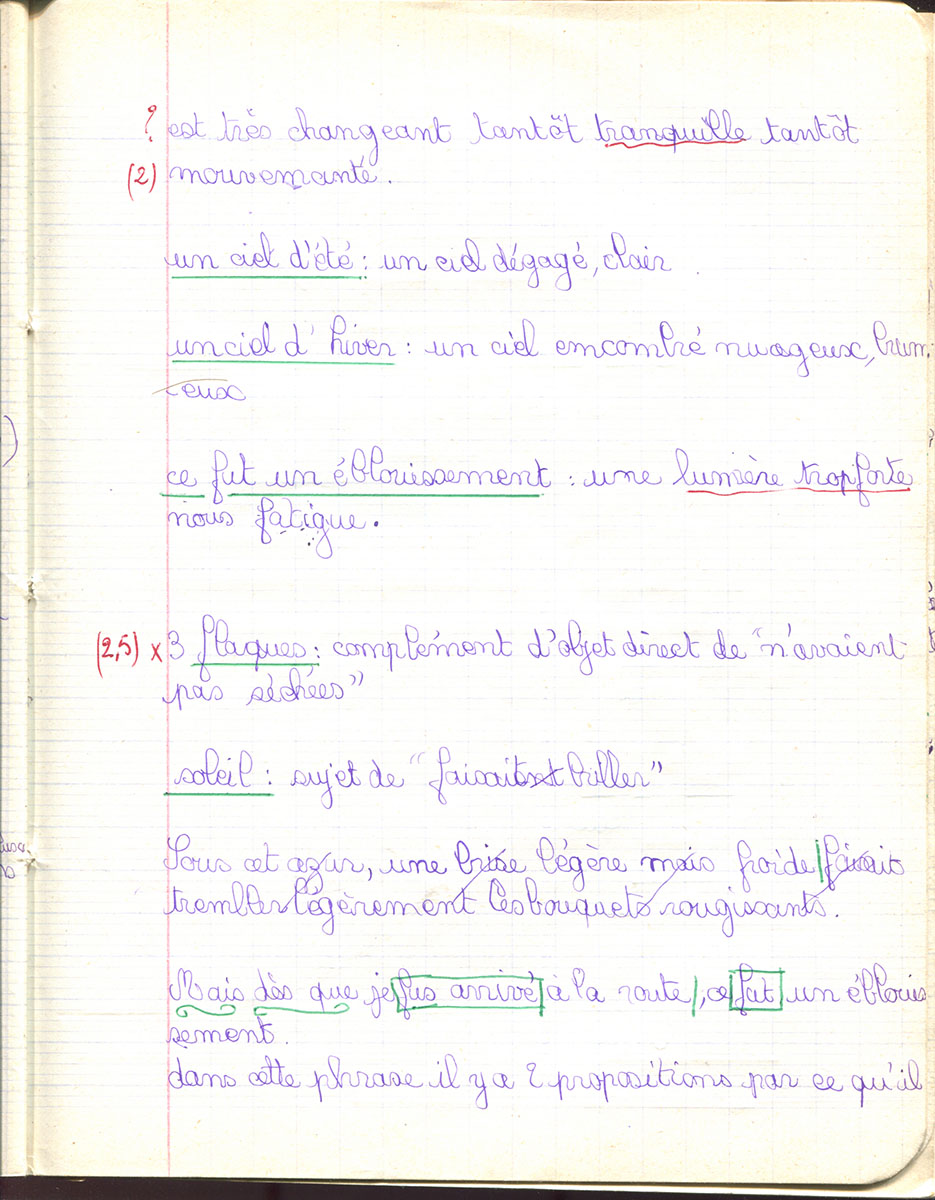 ? est très changeant tantôt tranquille tantôt
(2) mouvemanté.
un ciel d'été : un ciel dégagé, clair
un ciel d'hiver : un ciel emcombré nuageux, brum-
eux
ce fut un éblouissement : une lumière trop forte
nous fatigue.
(2,5) x 3 flaques : complément d'objet direct de "n'avaient
pas séchées"
soleil : sujet de "faisait briller"
Sous cet azur, une brise légère mais froide faisait
trembler légèrement les bouquets rougissants.
Mais dès que je fus arrivé à la route, ce fut un éblouis
sement.
dans cette phrase il y a 2 propositions par ce qu'il